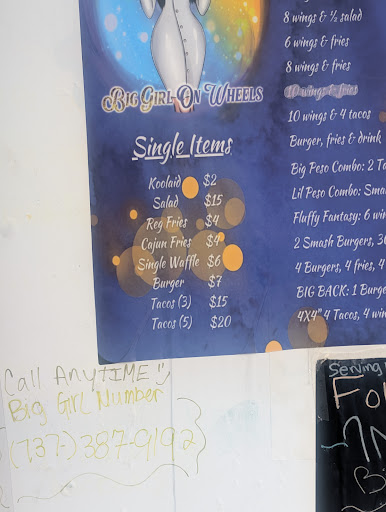 8 wings & ½ salad
6 wings & fries
8 wings & fries
10 wings & fries
10 wings & 4 tacos
Burger, fries & drink
Big Peso Combo: 2 Ta
Lil Peso Combo: Sma
Fluffy Fantasy: 6 win
2 Smash Burgers, 30
4 Burgers, 4 fries, 4
BIG BACK: 1 Burge
4X4" 4 Tacos, 4 win
Big Girl On Wheels
Single Items
Koolaid $2
Salad $15
Reg Fries $4
Cajun Fries $4
Single Waffle $6
Burger $7
Tacos (3) $15
Tacos (5) $20
Call ANYTIME
Big Girl Number
(737-)387-9192
Serving
Fo